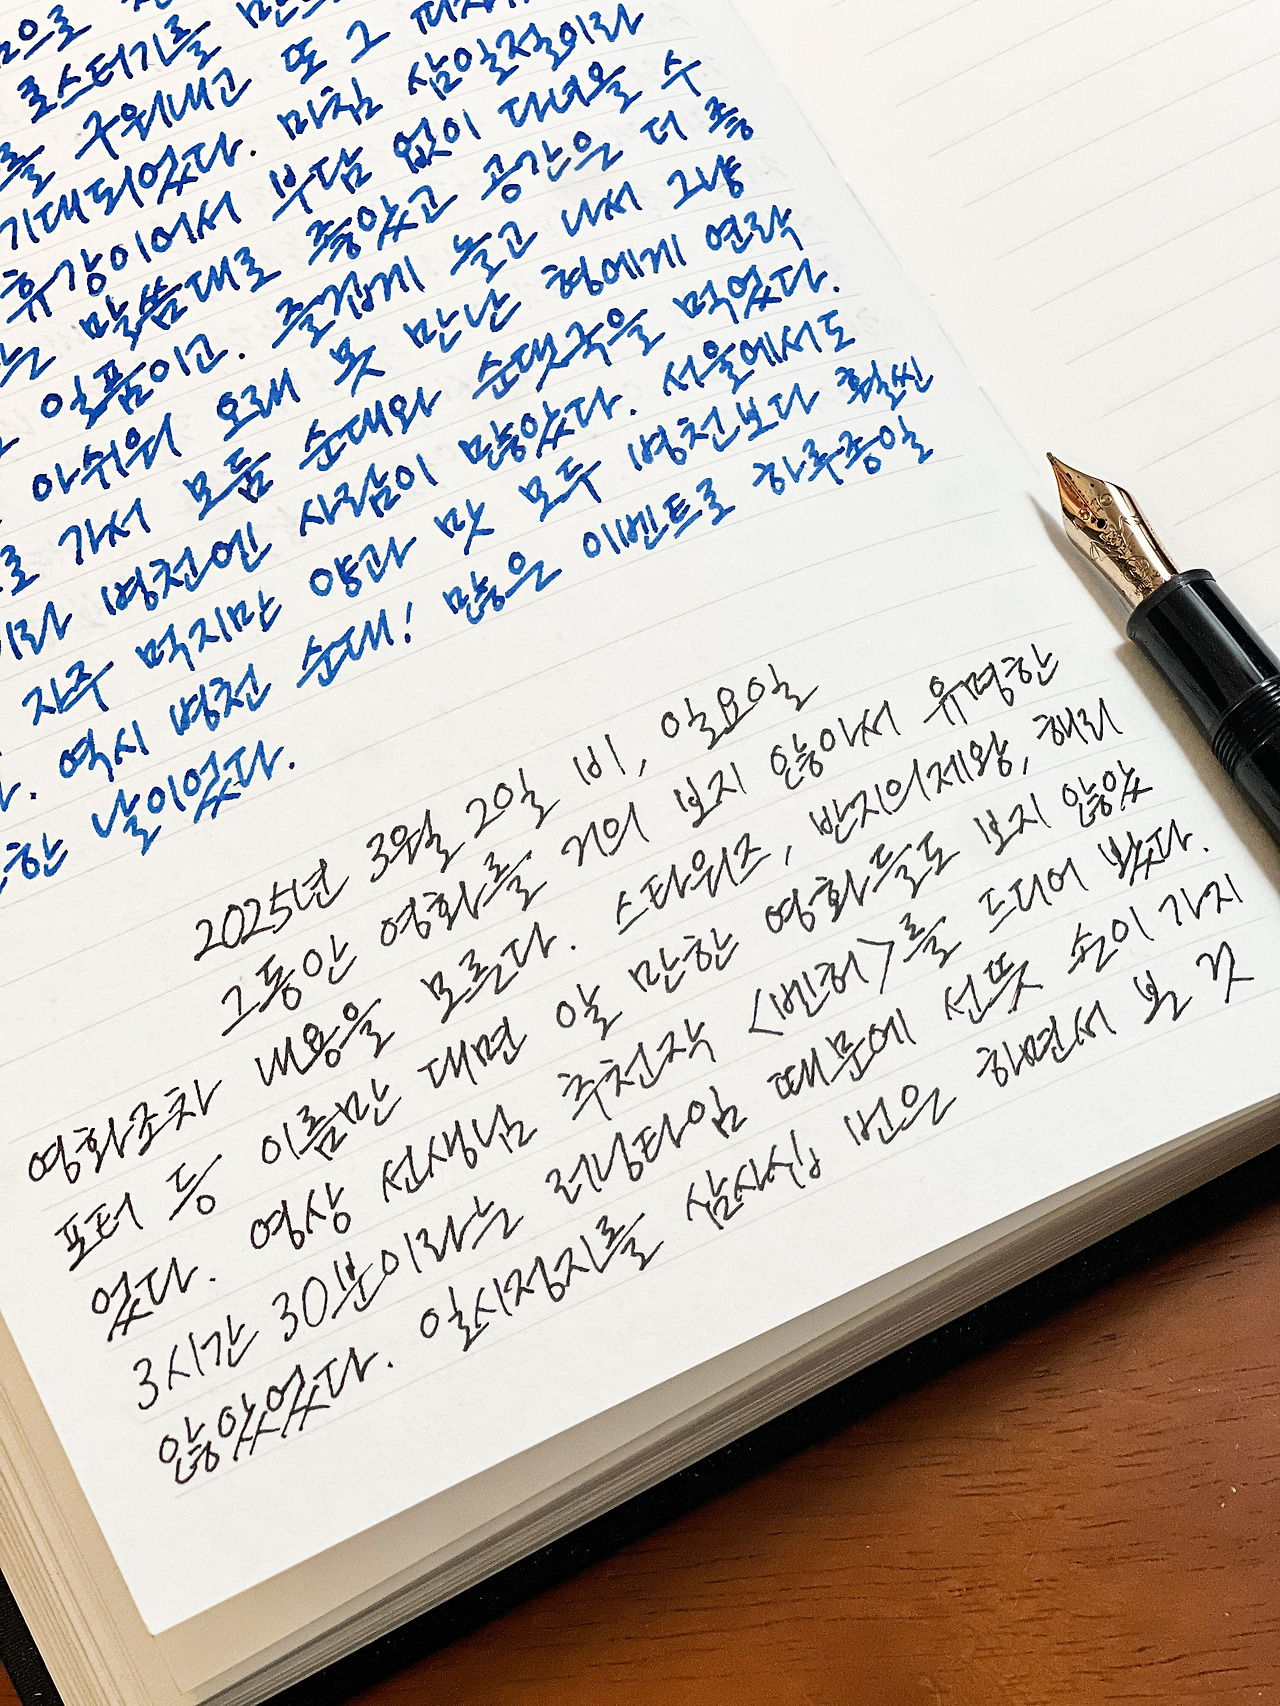 으로
로스터기를
를 구워내고 또 그
기대되었다. 마침 삼일절이라
휴강이어서 부담 없이 다녀올 수
는 말씀대로 좋았고 공간은 더 좋
일품이고. 즐겁게 놀고 나서 그냥
아쉬워 오래 못 만난 형에게 연락
로 가서 모듬 순대와 순댓국을 먹었다.
이라 병천엔 사람이 많았다. 서울에서도
자주 먹지만 양과 맛 모두 병천보다 훨씬
다. 역시 병천 순대! 많은 이벤트로 하루종일
한 날이었다.
2025년 3월 2일 비, 일요일
그동안 영화를 거의 보지 않아서 유명한
영화조차 내용을 모른다. 스타워즈, 반지의제왕, 해리
포터 등 이름만 대면 알 만한 영화들도 보지 않았
었다. 영상 선생님 추천작 <벤허>를 드디어 봤다.
3시간 30분이라는 러닝타임 때문에 선뜻 손이 가지
않았었다. 일시정지를 삼사십 번은 하면서 본 것